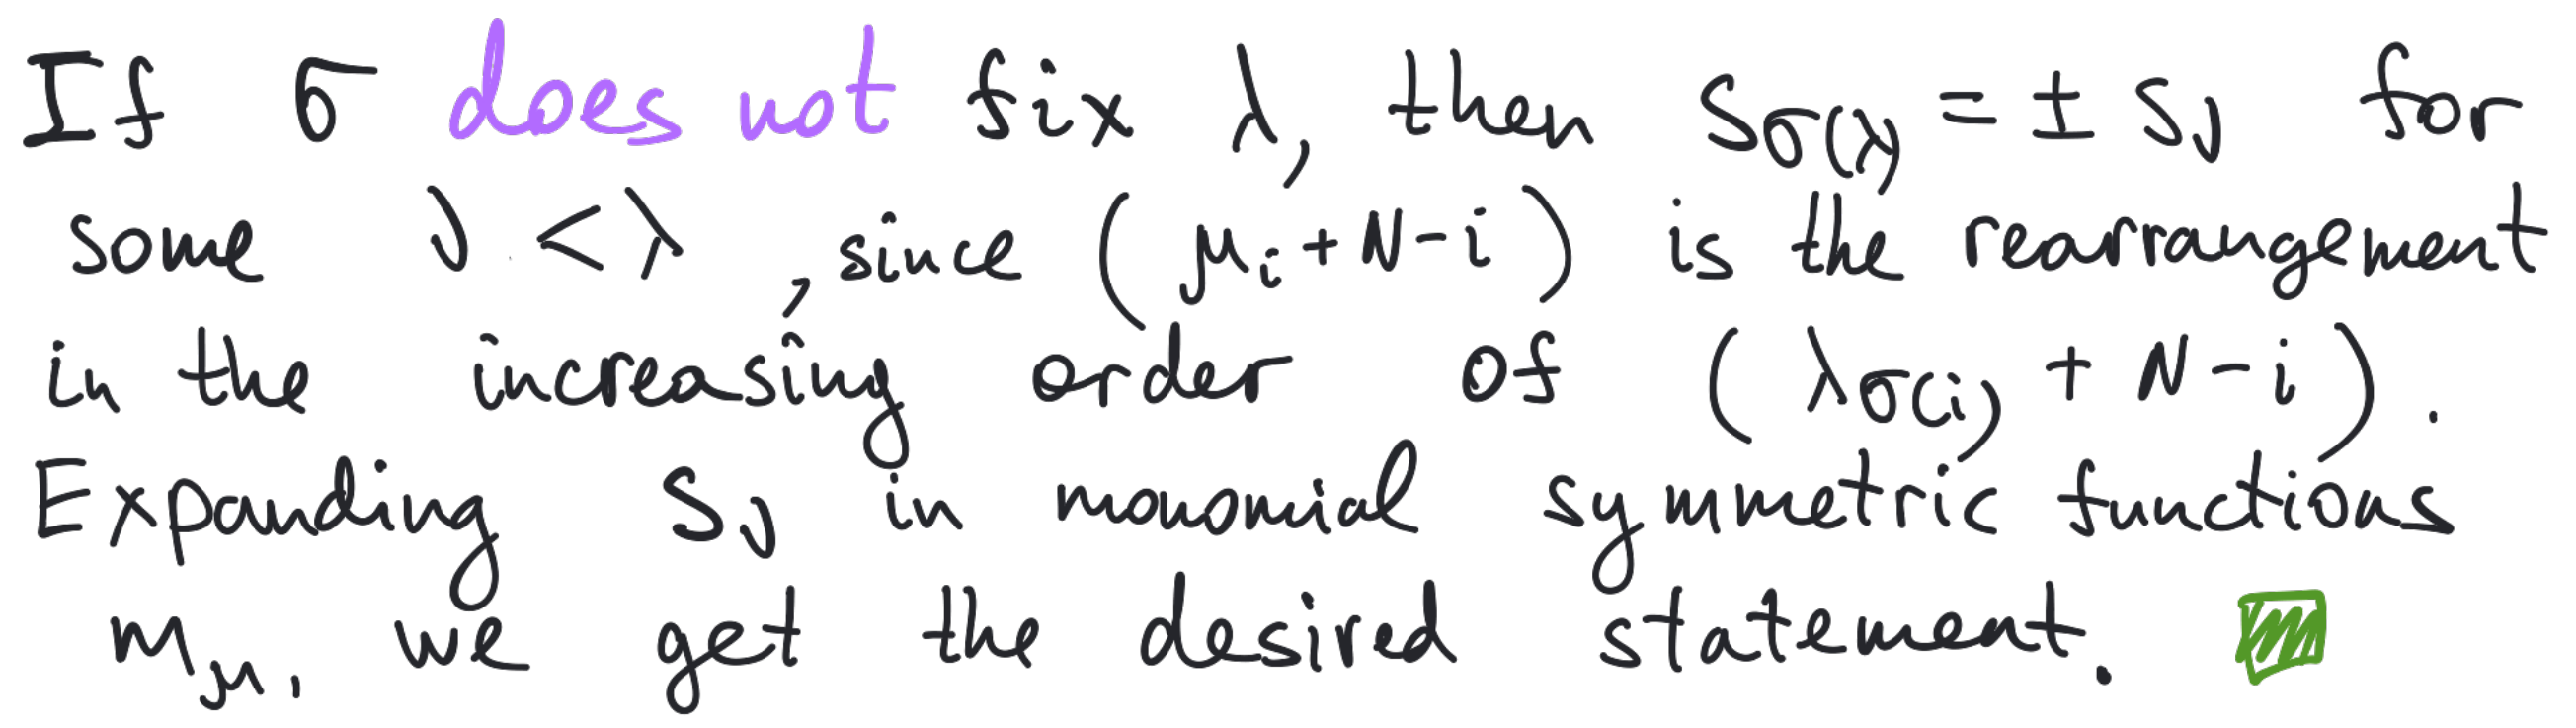 If σ does not fix λ, then s_{σ(λ)} = ± s_ν for
some ν < λ, since (μ_i + N - i) is the rearrangement
in the increasing order of (λ_{σ(i)} + N - i).
Expanding s_ν in monomial symmetric functions
m_μ, we get the desired statement.